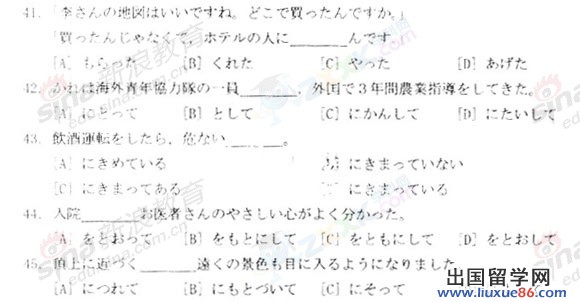 41.「李さんの地図はいいですね。どこで買ったんですか。」
「買ったんじゃなくて、ホテルの人に______んです
[A] もらった [B] くれた [C] やった [D] あげた
42. かれは海外青年協力隊の一員______、外国で3年間農業指導をしてきた。
[A] にとって [B] として [C] にかんして [D] にたいして
43. 飲酒運転をしたら、危ない______。
[A] にきめている [B] にきまっていない
[C] にきまってある [D] にきまっている
44. 入院______お医者さんのやさしい心がよく分かった。
[A] をとおって [B] をもとにして [C] をともにして [D] をとおして
45. 頂上に近づく______遠くの景色も目に入るようになりました
[A] につれて [B] にもとづいて [C] にそって
出国留学网
www.liuxue86.com
sina 新浪教育
edu.sina